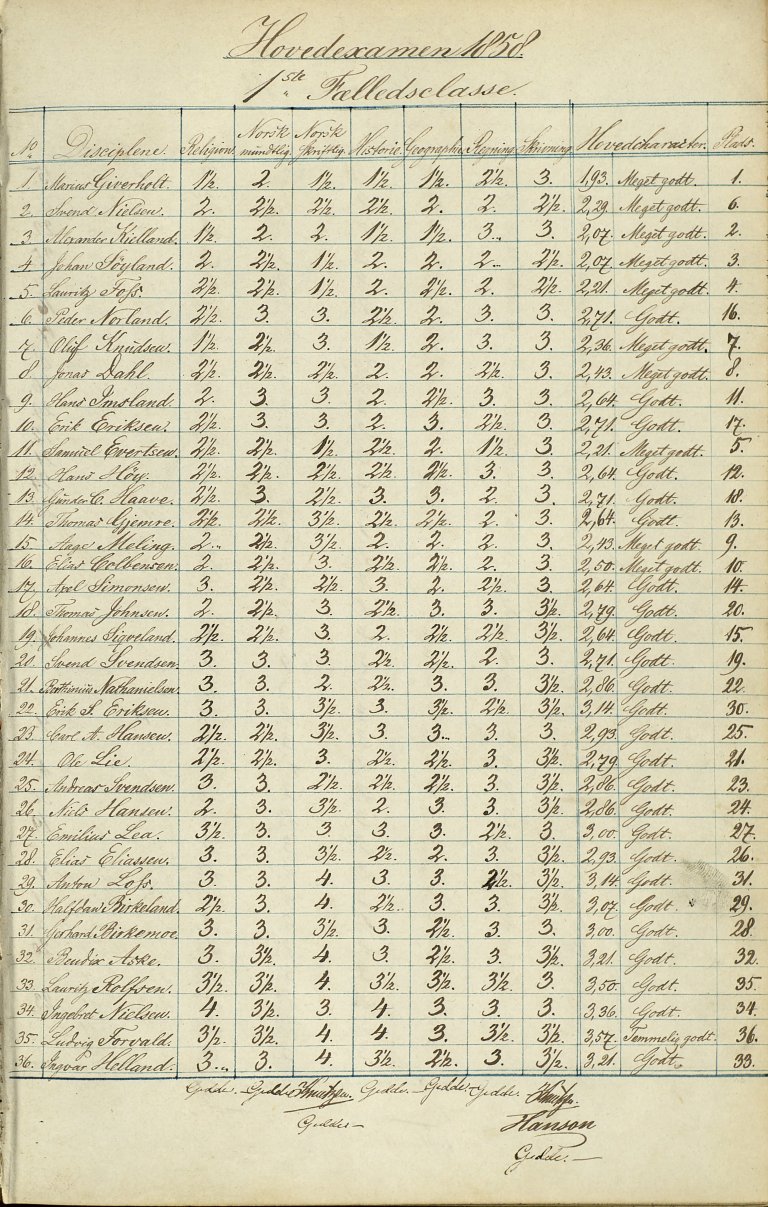 Hovedexamen 1858.
1ste Fælledsclasse.
No. Disciplene. Religion. Norsk mundtlig. Norsk skriftlig. Historie. Geographie. Regning. Skrivning. Hovedcharakter. Plads.
1. Marius Giverholt. 1½. 2. 1½. 1½. 1½. 2½. 3. 1,93. Meget godt. 1.
2. Svend Nielsen. 2. 2½. 2½. 2½. 2. 2. 2½. 2,29. Meget godt. 6.
3. Alexander Kielland. 1½. 2. 2. 1½. 1½. 3. 3. 2,07. Meget godt. 2.
4. Johan Söyland. 2. 2½. 1½. 2. 2. 2. 2½. 2,07. Meget godt. 3.
5. Lauritz Foss. 2½. 2½. 1½. 2. 2½. 2. 2½. 2,21. Meget godt. 4.
6. Peder Norland. 2½. 3. 3. 2½. 2. 3. 3. 2,71. Godt. 16.
7. Oluf Knudsen. 1½. 2½. 3. 1½. 2. 3. 3. 2,36. Meget godt. 7.
8. Jonas Dahl. 2½. 2½. 2½. 2. 2. 2½. 3. 2,43. Meget godt. 8.
9. Hans Imsland. 2. 3. 3. 2. 2½. 3. 3. 2,64. Godt. 11.
10. Erik Eriksen. 2½. 3. 3. 2. 3. 2½. 3. 2,71. Godt. 17.
11. Samuel Evertsen. 2½. 2½. 1½. 2½. 2. 1½. 3. 2,21. Meget godt. 5.
12. Hans Höy. 2½. 2½. 2½. 2½. 2½. 3. 3. 2,64. Godt. 12.
13. Gunder C. Haave. 2½. 3. 2½. 3. 3. 2. 3. 2,71. Godt. 18.
14. Thomas Gjemre. 2½. 2½. 3½. 2½. 2½. 2. 3. 2,64. Godt. 13.
15. Aage Meling. 2. 2½. 3½. 2. 2. 2. 3. 2,43. Meget godt. 9.
16. Elias Colbensen. 2. 2½. 3. 2½. 2½. 2. 3. 2,50. Meget godt. 10.
17. Axel Simonsen. 3. 2½. 2½. 3. 2. 2½. 3. 2,64. Godt. 14.
18. Thomas Johnsen. 2. 2½. 3. 2½. 3. 3. 3½. 2,79. Godt. 20.
19. Johannes Sigveland. 2½. 2½. 3. 2. 2½. 2½. 3½. 2,64. Godt. 15.
20. Svend Svendsen. 3. 3. 3. 2½. 2½. 2. 3. 2,71. Godt. 19.
21. Nathanielsen. 3. 3. 2. 2½. 3. 3. 3½. 2,86. Godt. 22.
22. Erik S. Eriksen. 3. 3. 3½. 3. 3½. 2½. 3½. 3,14. Godt. 30.
23. Carl A. Hansen. 2½. 2½. 3½. 3. 3. 3. 3. 2,93 Godt. 25.
24. Ole Lie. 2½. 2½. 3. 2½. 2½. 3. 3½. 2,79. Godt. 21.
25. Andreas Svendsen. 3. 3. 2½. 2½. 2½. 3. 3½. 2,86. Godt. 23.
26. Niels Hansen. 2. 3. 3½. 2. 3. 3. 3½. 2,86. Godt. 24.
27. Emilius Lea. 3½. 3. 3. 3. 3. 2½. 3. 3,00. Godt. 27.
28. Elias Eliassen. 3. 3. 3½. 2½. 2. 3. 3½. 2,93. Godt. 26.
29. Anton Loss. 3. 3. 4. 3. 3. 2½. 3½. 3,14. Godt. 31.
30. Halfdan Birkeland. 2½. 3. 4. 2½. 3. 3. 3½. 3,07. Godt. 29.
31. Gerhard Birkemoe. 3. 3. 3½. 3. 2½. 3. 3. 3,00. Godt. 28.
32. Bendix Aske. 3. 3½. 4. 3. 2½. 3. 3½. 3,21. Godt. 32.
33. Lauritz Rolfsen. 3½. 3½. 4. 3½. 3½. 3½. 3. 3,50. Godt. 35.
34. Ingebret Nielsen. 4. 3½. 3. 4. 3. 3. 3. 3,36. Godt. 34.
35. Ludvig Forvald. 3½. 3½. 4. 4. 3. 3½. 3½. 3,57. Temmelig godt. 36.
36. Ingvar Helland. 3. 3. 4. 3½. 2½. 3. 3½. 3,21. Godt. 33.
Gedde. Gedde Gedde. Gedde. Gedde.
Gedde Hanson
Gedde.